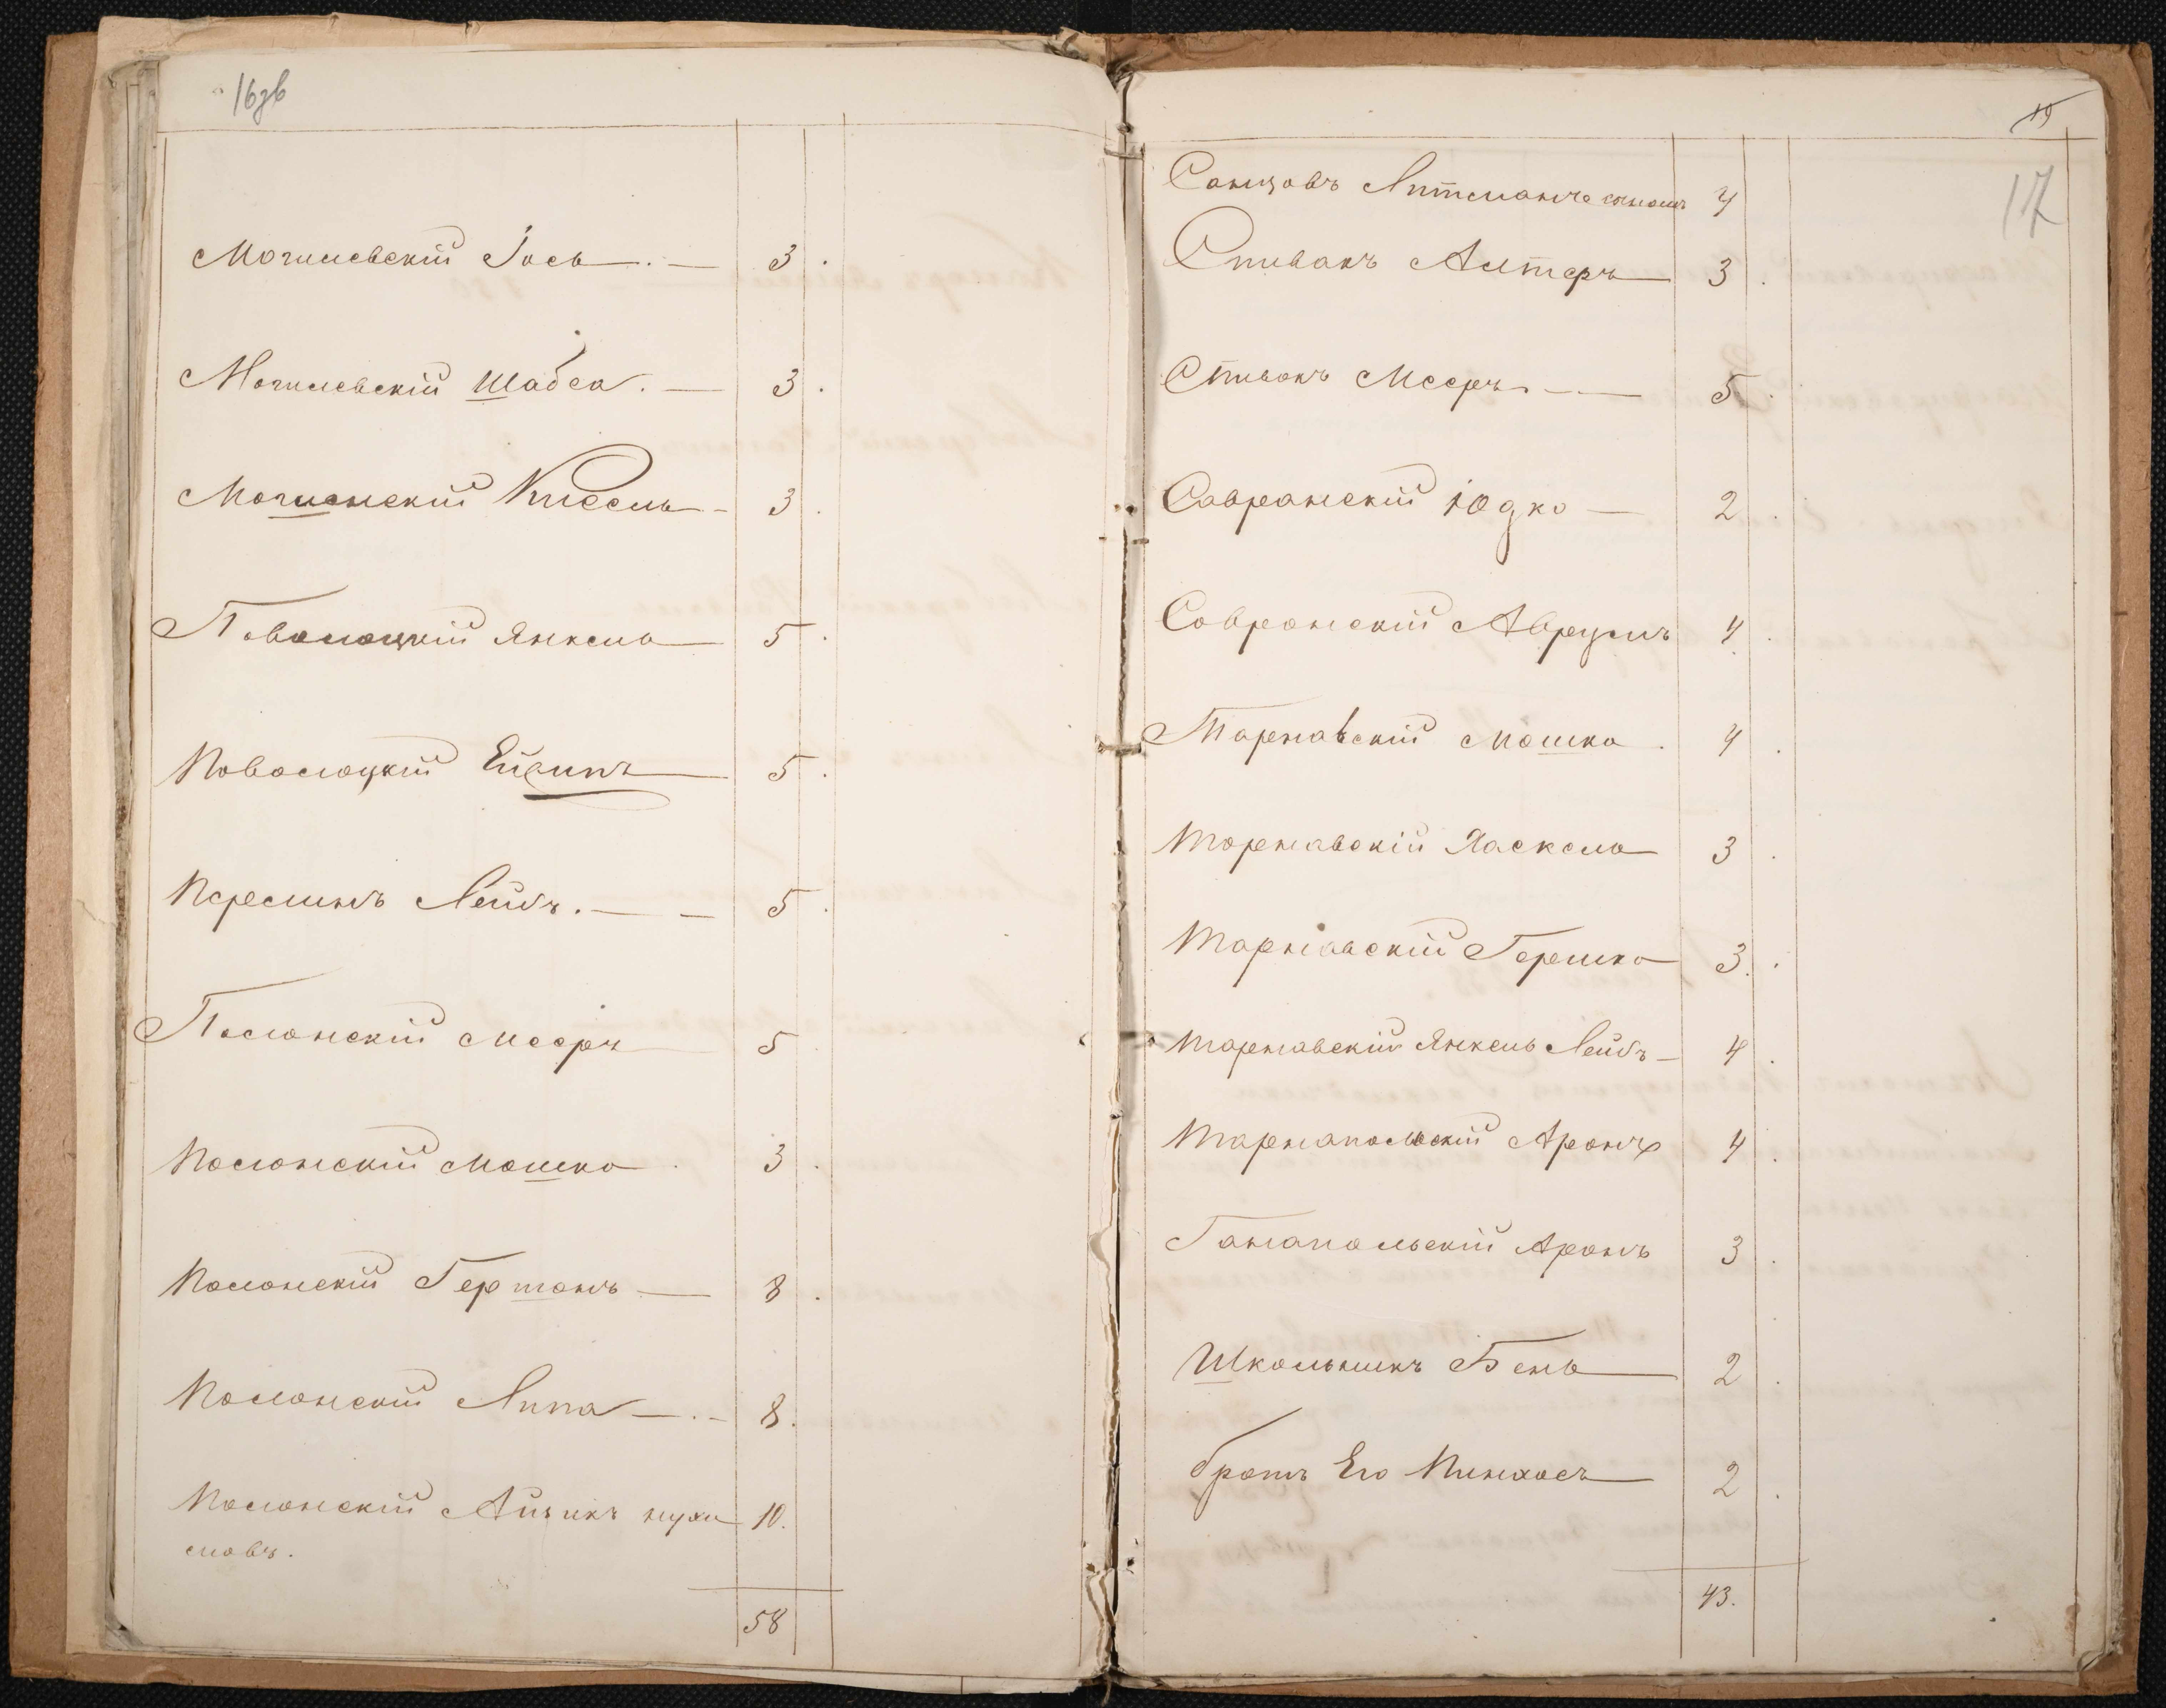 16зв
Могилевскій Іось. — 3.
Могилевскій Шабса. — 3.
Могилевскій Кисель - 3.
Поволоцкій Янкель — 5.
Поволоцкій — 5.
Перелинъ Лейбъ. — — 5.
Полонскій Мееръ — 5
Полонскій Мошко. 3.
Полонскій Германъ — 8.
Полонскій Липа —.- 8.
Полонскій Айзикъ нухи 10.
мовъ.
58
15
17
Литманъ с сыномъ 4
Спивакъ Алтеръ — 3.
Спивакъ Мееръ. — 5.
Савранскій Юдко — 2.
Савранскій Аврумъ 4.
Тарнавскій Мошко. 4.
Тарнавскій Хаскель — 3.
Тарнавскій Гершко — 3..
Тарнавскій Янкель Лейбъ — 4.
Тарнапольскій Аронъ 4.
Танапольскій Аронъ 3.
Школьникъ Бень — 2.
братъ Его Пинхосъ — 2.
43.